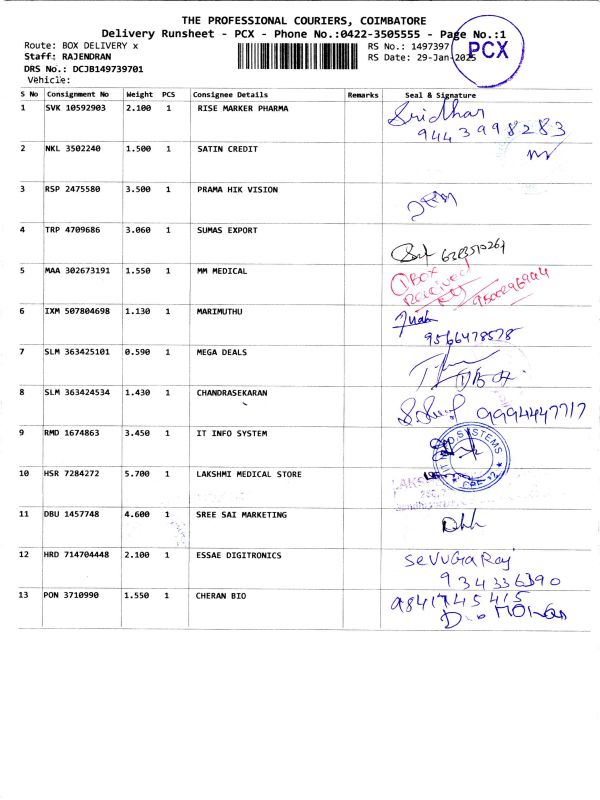 THE PROFESSIONAL COURIERS, COIMBATORE
Delivery Runsheet - PCX - Phone No.:0422-3505555 - Page No.:1
Route: BOX DELIVERY x
RS No.: 1497397
PCX
Staff: RAJENDRAN
RS Date: 29-Jan-2025
DRS No.: DCJB149739701
Vehicle:
S No Consignment No Weight PCS Consignee Details Remarks Seal & Signature
1 SVK 10592903 2.100 1 RISE MARKER PHARMA Sridhar
9443998283
2 NKL 3502240 1.500 1 SATIN CREDIT
3 RSP 2475580 3.500 1 PRAMA HIK VISION
4 TRP 4709686 3.060 1 SUMAS EXPORT
5 MAA 302673191 1.550 1 MM MEDICAL 1 BOX
Received
6 IXM 507804698 1.130 1 MARIMUTHU
9566478578
7 SLM 363425101 0.590 1 MEGA DEALS
8 SLM 363424534 1.430 1 CHANDRASEKARAN 9994447717
9 RMD 1674863 3.450 1 IT INFO SYSTEM
SYSTEMS
10 HSR 7284272 5.700 1 LAKSHMI MEDICAL STORE
11 DBU 1457748 4.600 1 SREE SAI MARKETING
12 HRD 714704448 2.100 1 ESSAE DIGITRONICS Sevugaraj
934336390
13 PON 3710990 1.550 1 CHERAN BIO 9841745415